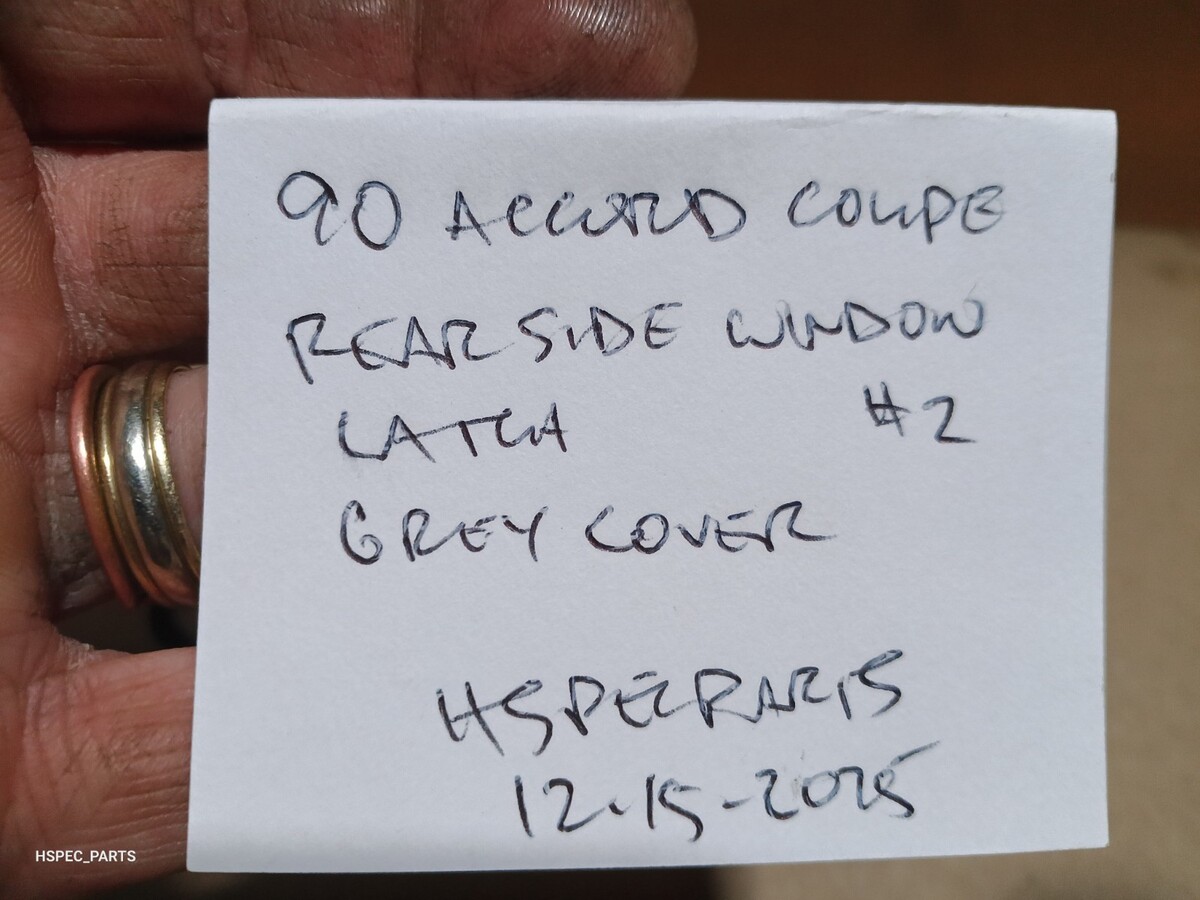 90 ACCORD COUPE
REAR SIDE WINDOW
LATCH #2
GREY COVER
HSPECPARTS
12-15-2025
HSPEC_PARTS